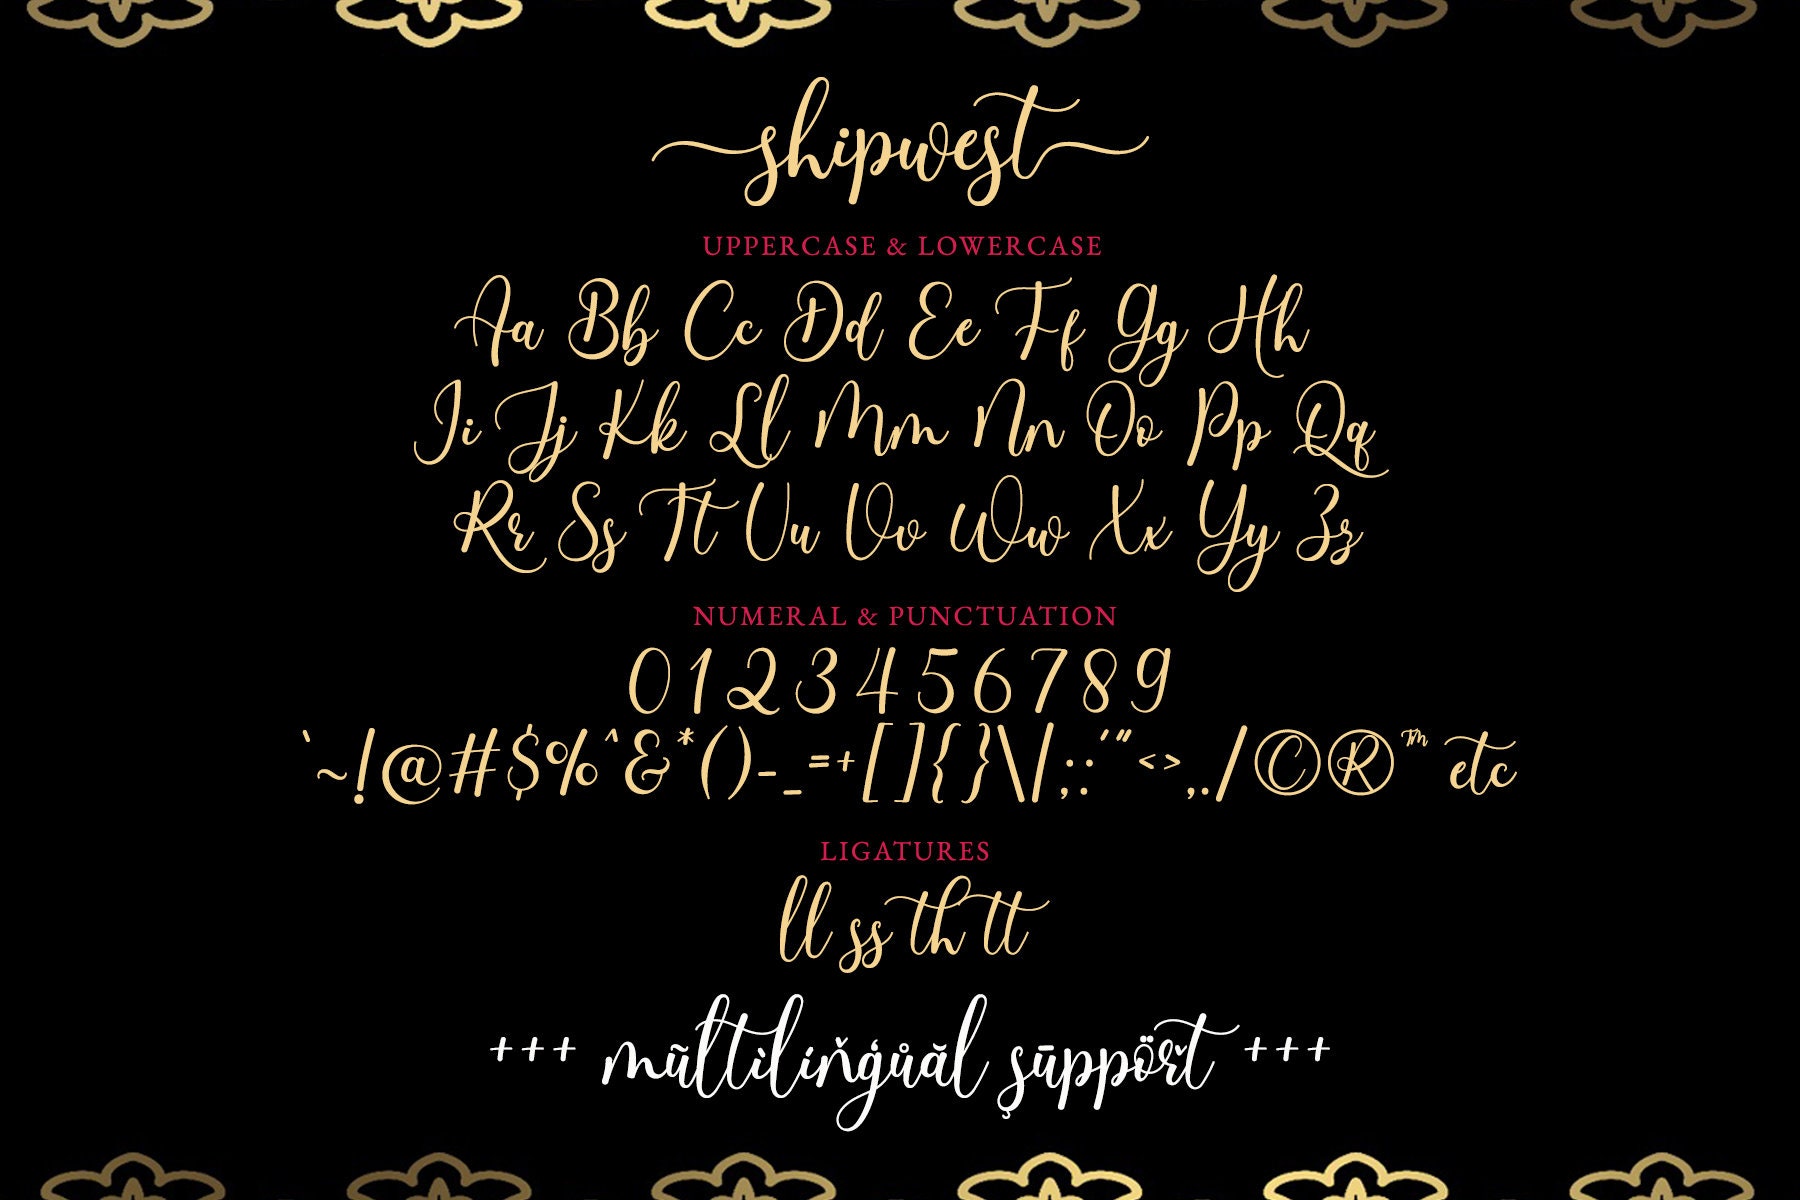 shipwest
UPPERCASE & LOWERCASE
Aa Bb Cc Dd Ee Ff Gg Hh
Ii Jj Kk Ll Mm Nn Oo Pp Qq
Rr Ss Tt Uu Vv Ww Xx Yy Zz
NUMERAL & PUNCTUATION
0 1 2 3 4 5 6 7 8 9
`~!@#$%^&*()-_=+[]{}\|;:'"<>,./©®™ etc
LIGATURES
ll ss th tt
+++ mũltìlíňģůăl şūppöřt +++